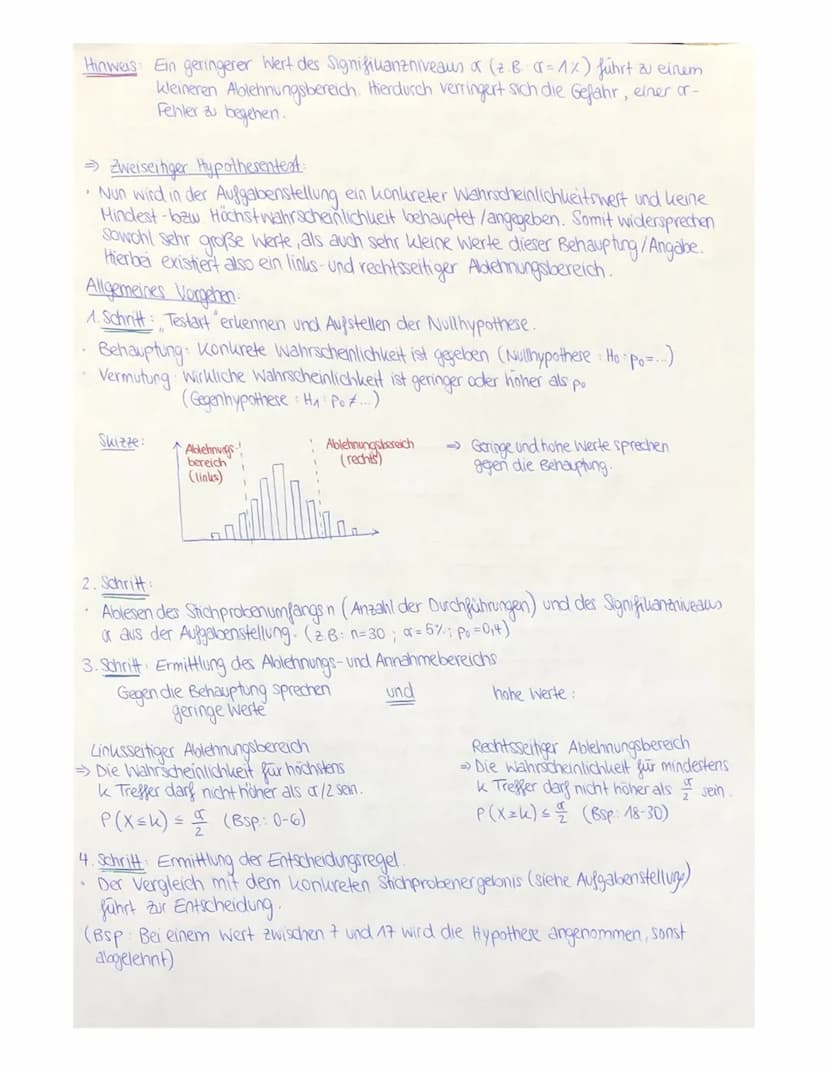 Hinweis: Ein geringerer Wert des Signifikanzniveaus α (z.B. α=1%) führt zu einem
kleineren Ablehnungsbereich. Hierdurch verringert sich die Gefahr, einer α-
Fehler zu begehen.
⇒ Zweiseitiger Hypothesentest:
• Nun wird in der Aufgabenstellung ein konkreter Wahrscheinlichkeitswert und keine
Mindest- bzw Höchstwahrscheinlichkeit behauptet/angegeben. Somit widersprechen
sowohl sehr große Werte, als auch sehr kleine Werte dieser Behauptung/Angabe.
Hierbei existiert also ein links- und rechtsseitiger Ablehnungsbereich.
Allgemeines Vorgehen:
1. Schritt: „Testart" erkennen und Aufstellen der Nullhypothese.
• Behauptung: Konkrete Wahrscheinlichkeit ist gegeben (Nullhypothese: H₀: p₀=...)
• Vermutung: Wirkliche Wahrscheinlichkeit ist geringer oder höher als p₀
(Gegenhypothese: H₁: p₀≠...)
Skizze:
Ablehnungs-
bereich
(links)
Ablehnungsbereich
(rechts)
⇒ Geringe und hohe Werte sprechen
gegen die Behauptung.
2. Schritt:
• Ablesen des Stichprobenumfangs n (Anzahl der Durchführungen) und des Signifikanzniveaus
α aus der Aufgabenstellung. (z.B: n=30; α=5%; p₀=0,4)
3. Schritt: Ermittlung des Ablehnungs- und Annahmebereichs
Gegen die Behauptung sprechen und hohe Werte:
geringe Werte
Linksseitiger Ablehnungsbereich
⇒ Die Wahrscheinlichkeit für höchstens
k Treffer darf nicht höher als α/2 sein.
P(X≤k) ≤ α/2 (Bsp.: 0-6)
Rechtsseitiger Ablehnungsbereich
⇒ Die Wahrscheinlichkeit für mindestens
k Treffer darf nicht höher als α/2 sein.
P(X≥k) ≤ α/2 (Bsp: 18-30)
4. Schritt: Ermittlung der Entscheidungsregel.
• Der Vergleich mit dem konkreten Stichprobenergebnis (siehe Aufgabenstellung)
führt zur Entscheidung.
(Bsp: Bei einem Wert zwischen 7 und 17 wird die Hypothese angenommen, sonst
abgelehnt)